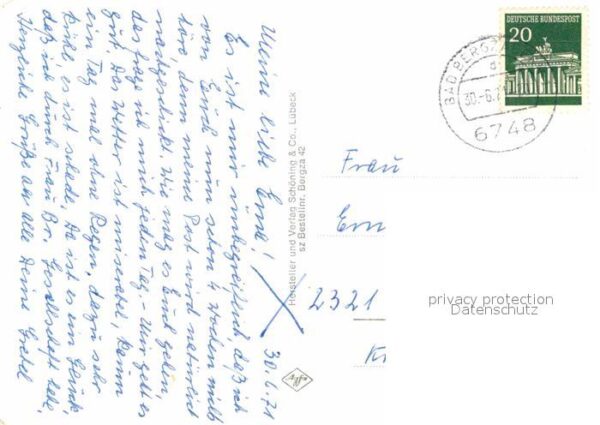 30.6.71
Meine liebe Erna!
Es ist mir unbegreiflich, daß ich
von Euch nun schon 4 Wochen nichts
höre, denn meine Post wird natürlich
nachgeschickt. Wie mag es Euch gehen,
das frage ich mich jeden Tag – Mir geht es
gut. Das Wetter ist miserabel, kaum
ein Tag mal ohne Regen, dazu sehr
kühl, es ist schade. Da ist es ein Glück,
daß ich durch Frau Br. Gesellschaft habe.
Herzliche Grüße an alle Deine Gretel
Hersteller und Verlag Schöning & Co., Lübeck
sz Bestellnr. Bergza 42
Agfa
DEUTSCHE BUNDESPOST
20
BAD BERGZA
30.-6.7
6748
Frau
Ern
2321
K
privacy protection
Datenschutz